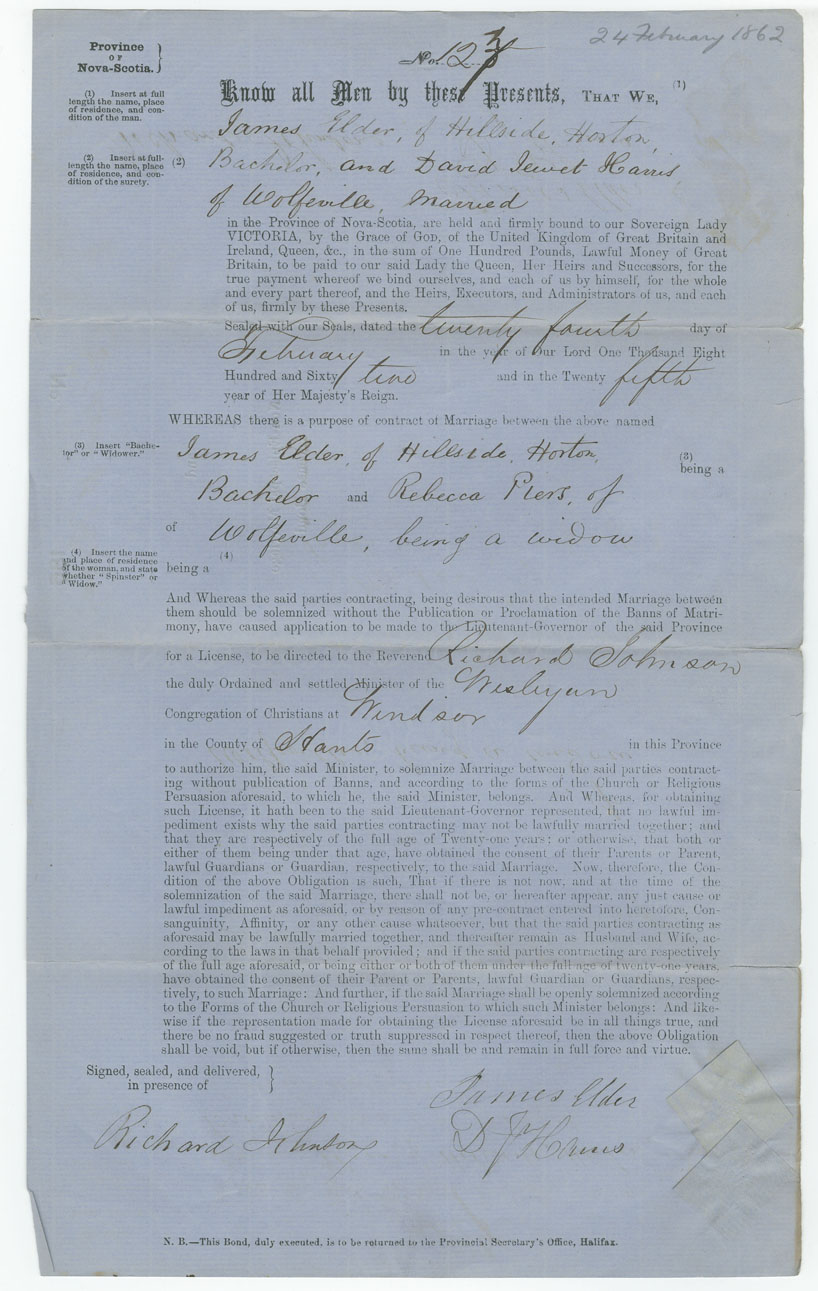 24 February 1862
Province
OF
Nova-Scotia.
No. 123
Know all Men by these Presents, THAT WE, (1)
(1) Insert at full length the name, place of residence, and condition of the man.
James Elder, of Hillside, Horton,
(2) Insert at full-length the name, place of residence, and condition of the surety.
(2) Bachelor, and David Jewet Harris
of Wolfeville, married
in the Province of Nova-Scotia, are held and firmly bound to our Sovereign Lady
VICTORIA, by the Grace of GOD, of the United Kingdom of Great Britain and
Ireland, Queen, &c., in the sum of One Hundred Pounds, Lawful Money of Great
Britain, to be paid to our said Lady the Queen, Her Heirs and Successors, for the
true payment whereof we bind ourselves, and each of us by himself, for the whole
and every part thereof, and the Heirs, Executors, and Administrators of us, and each
of us, firmly by these Presents.
Sealed with our Seals, dated the twenty fourth day of
February in the year of Our Lord One Thousand Eight
Hundred and Sixty two and in the Twenty fifth
year of Her Majesty's Reign.
WHEREAS there is a purpose of contract of Marriage between the above named
(3) Insert "Bachelor" or "Widower."
James Elder, of Hillside, Horton, (3)
being a
Bachelor and Rebecca Piers, of
of Wolfeville, being a widow
(4) Insert the name and place of residence of the woman, and state whether "Spinster" or "Widow."
(4)
being a
And Whereas the said parties contracting, being desirous that the intended Marriage between
them should be solemnized without the Publication or Proclamation of the Banns of Matri-
mony, have caused application to be made to the Lieutenant-Governor of the said Province
for a License, to be directed to the Reverend Richard Johnson
the duly Ordained and settled Minister of the Wesleyan
Congregation of Christians at Windsor
in the County of Hants in this Province
to authorize him, the said Minister, to solemnize Marriage between the said parties contract-
ing without publication of Banns, and according to the forms of the Church or Religious
Persuasion aforesaid, to which he, the said Minister, belongs. And Whereas, for obtaining
such License, it hath been to the said Lieutenant-Governor represented, that no lawful im-
pediment exists why the said parties contracting may not be lawfully married together; and
that they are respectively of the full age of Twenty-one years; or otherwise, that both or
either of them being under that age, have obtained the consent of their Parents or Parent,
lawful Guardians or Guardian, respectively, to the said Marriage. Now, therefore, the Con-
dition of the above Obligation is such, That if there is not now, and at the time of the
solemnization of the said Marriage, there shall not be, or hereafter appear, any just cause or
lawful impediment as aforesaid, or by reason of any pre-contract entered into heretofore, Con-
sanguinity, Affinity, or any other cause whatsoever, but that the said parties contracting as
aforesaid may be lawfully married together, and thereafter remain as Husband and Wife, ac-
cording to the laws in that behalf provided; and if the said parties contracting are respectively
of the full age aforesaid, or being either or both of them under the full age of twenty-one years,
have obtained the consent of their Parent or Parents, lawful Guardian or Guardians, respec-
tively, to such Marriage: And further, if the said Marriage shall be openly solemnized according
to the Forms of the Church or Religious Persuasion to which such Minister belongs: And like-
wise if the representation made for obtaining the License aforesaid be in all things true, and
there be no fraud suggested or truth suppressed in respect thereof, then the above Obligation
shall be void, but if otherwise, then the same shall be and remain in full force and virtue.
Signed, sealed, and delivered,
in presence of
James Elder
Richard Johnson
D J Harris
N. B.—This Bond, duly executed, is to be returned to the Provincial Secretary's Office, Halifax.